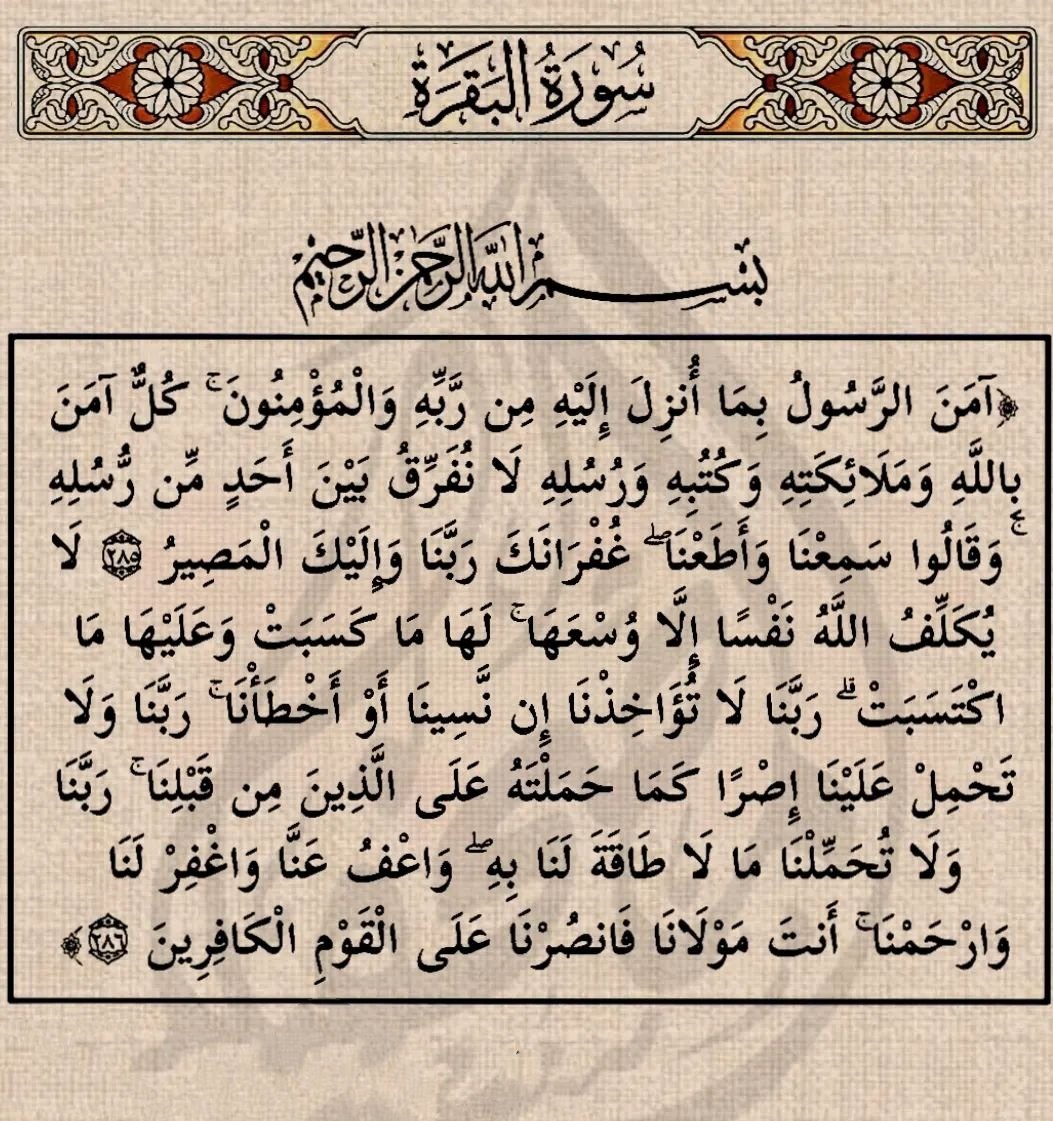 سُورَةُ الْبَقَرَةِ
بِسْمِ اللَّهِ الرَّحْمَٰنِ الرَّحِيمِ
﴿آمَنَ الرَّسُولُ بِمَا أُنزِلَ إِلَيْهِ مِن رَّبِّهِ وَالْمُؤْمِنُونَ ۚ كُلٌّ آمَنَ
بِاللَّهِ وَمَلَائِكَتِهِ وَكُتُبِهِ وَرُسُلِهِ لَا نُفَرِّقُ بَيْنَ أَحَدٍ مِّن رُّسُلِهِ
ۚ وَقَالُوا سَمِعْنَا وَأَطَعْنَا ۖ غُفْرَانَكَ رَبَّنَا وَإِلَيْكَ الْمَصِيرُ ٢٨٥ لَا
يُكَلِّفُ اللَّهُ نَفْسًا إِلَّا وُسْعَهَا ۚ لَهَا مَا كَسَبَتْ وَعَلَيْهَا مَا
اكْتَسَبَتْ ۗ رَبَّنَا لَا تُؤَاخِذْنَا إِن نَّسِينَا أَوْ أَخْطَأْنَا ۚ رَبَّنَا وَلَا
تَحْمِلْ عَلَيْنَا إِصْرًا كَمَا حَمَلْتَهُ عَلَى الَّذِينَ مِن قَبْلِنَا ۚ رَبَّنَا
وَلَا تُحَمِّلْنَا مَا لَا طَاقَةَ لَنَا بِهِ ۖ وَاعْفُ عَنَّا وَاغْفِرْ لَنَا
وَارْحَمْنَا ۚ أَنتَ مَوْلَانَا فَانصُرْنَا عَلَى الْقَوْمِ الْكَافِرِينَ ٢٨٦﴾